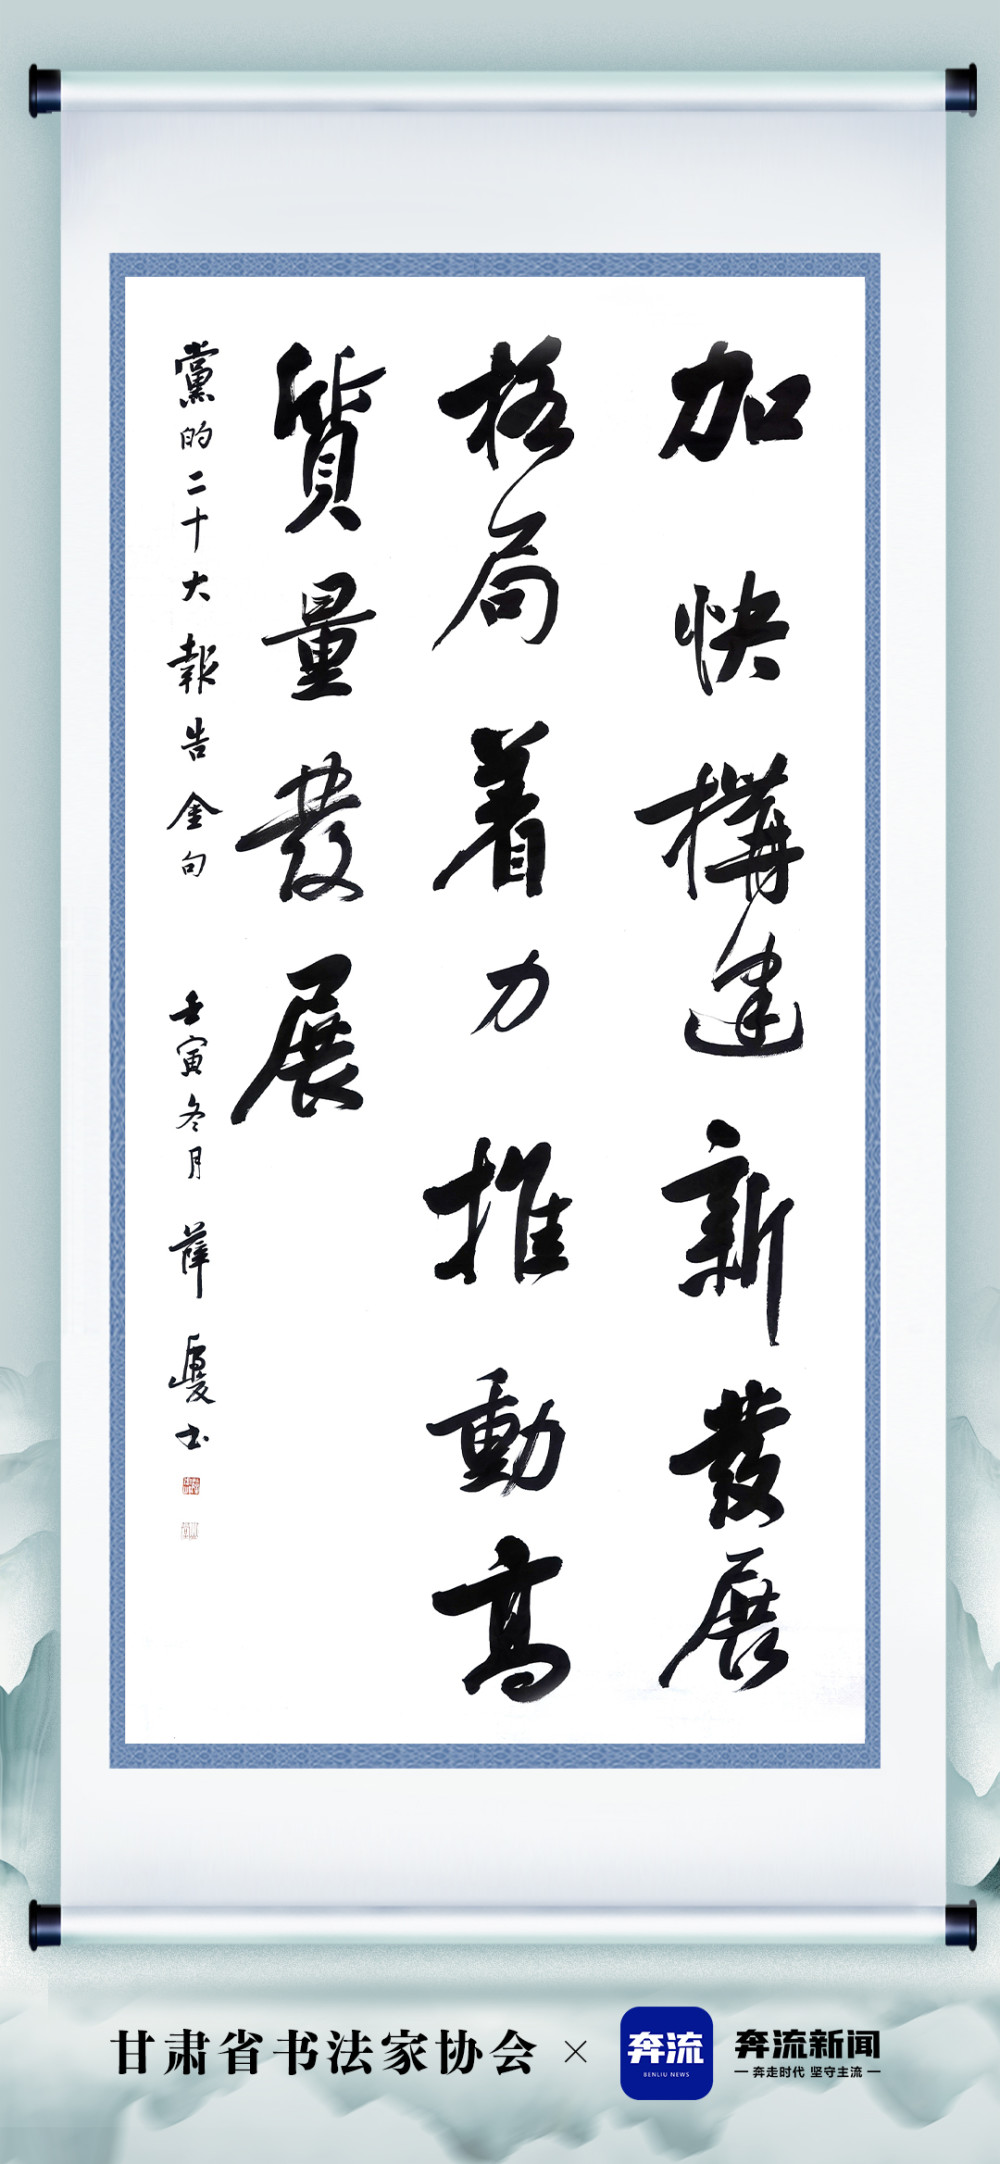 加快構建新發展
格局着力推動高
質量發展
黨的二十大報告金句 壬寅冬月 薛 书
甘肃省书法家协会 × 奔流 奔流新闻
BENLIU NEWS
奔走时代 坚守主流